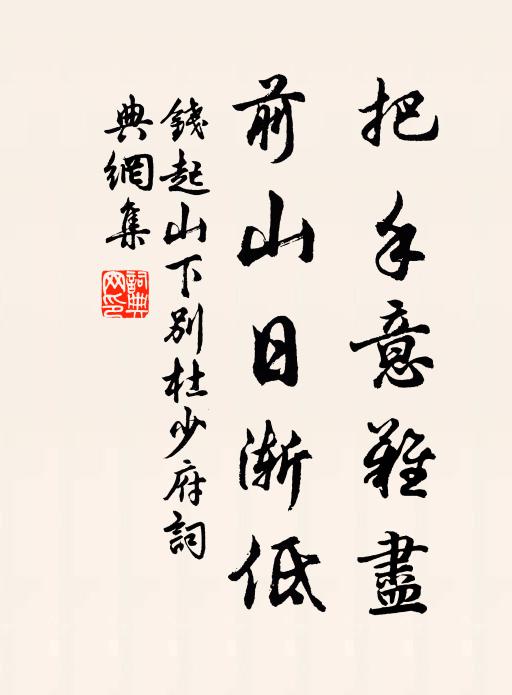 把手意難盡
前山日漸低
錢起山下別杜少府詞
典網集
詞典
网印